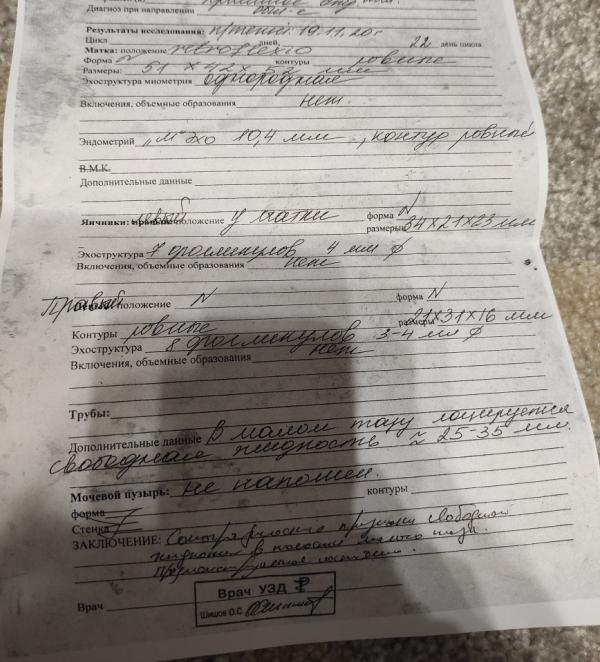 Диагноз при направлении
Результаты исследования: п/менс. 19.11.20г
Цикл дней, 22 день цикла
Матка: положение retroflexio
Форма N контуры ровные
Размеры: 51 х 42 х 52 мм
Эхоструктура миометрия однородная
Включения, объемные образования нет.
Эндометрий „М" эхо 10,4 мм, контур ровный
В.М.К.
Дополнительные данные
Яичники: правый левый положение у матки форма N
размеры 34х21х23 мм
Эхоструктура 7 фолликулов 4 мм ϕ
Включения, объемные образования нет
Правый положение N форма N
Контуры ровные размеры 21х31х16 мм
Эхоструктура 8 фолликулов 3-4 мм ϕ
Включения, объемные образования нет
Трубы:
Дополнительные данные В малом тазу лоцируется
свободная жидкость ≈ 25-35 мм.
Мочевой пузырь: не наполнен. контуры
форма
Стенка
ЗАКЛЮЧЕНИЕ: признаки свободной
жидкости в полости малого таза.
Врач УЗД
Врач Шишов О.С.